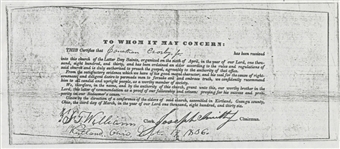 TO WHOM IT MAY CONCERN:
THIS Certifies that Jonathan Crosby Jr. has been received
into this church of the Latter Day Saints, organized on the sixth of April, in the year of our Lord, one thousand, eight hundred, and thirty, and has been ordained an elder according to the rules and regulations of
said church and is duly authorized to preach the gospel, agreeably to the authority of that office.
From the satisfactory evidence which we have of his good moral character, and his zeal for the cause of righteousness and diligent desire to persuade men to forsake evil and embrace truth, we confidently recommend
him to all candid and upright people, as a worthy member of society.
We, therefore, in the name, and by the authority of this church, grant unto this, our worthy brother in the
Lord, this letter of commendation as a proof of our fellowship and esteem: praying for his success and prosperity in our Redeemer's cause.
Given by the direction of a conference of the elders of said church, assembled in Kirtland, Geauga county,
Ohio, the third day of March, in the year of our Lord one thousand, eight hundred, and thirty six.
F. G. Williams Clerk. Joseph Smith Jr Chairman.
Kirtland, Ohio, 1836.